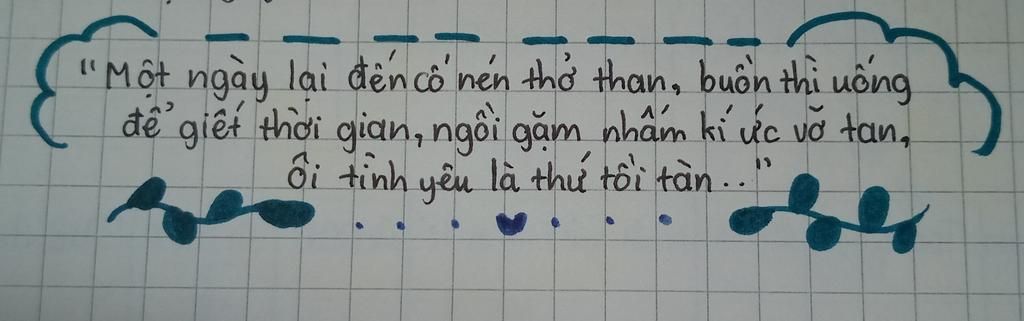 "Một ngày lại đến cố nén thở than, buồn thì uống
để giết thời gian, ngồi gặm nhấm kí ức vỡ tan,
Ôi tình yêu là thứ tồi tàn.."